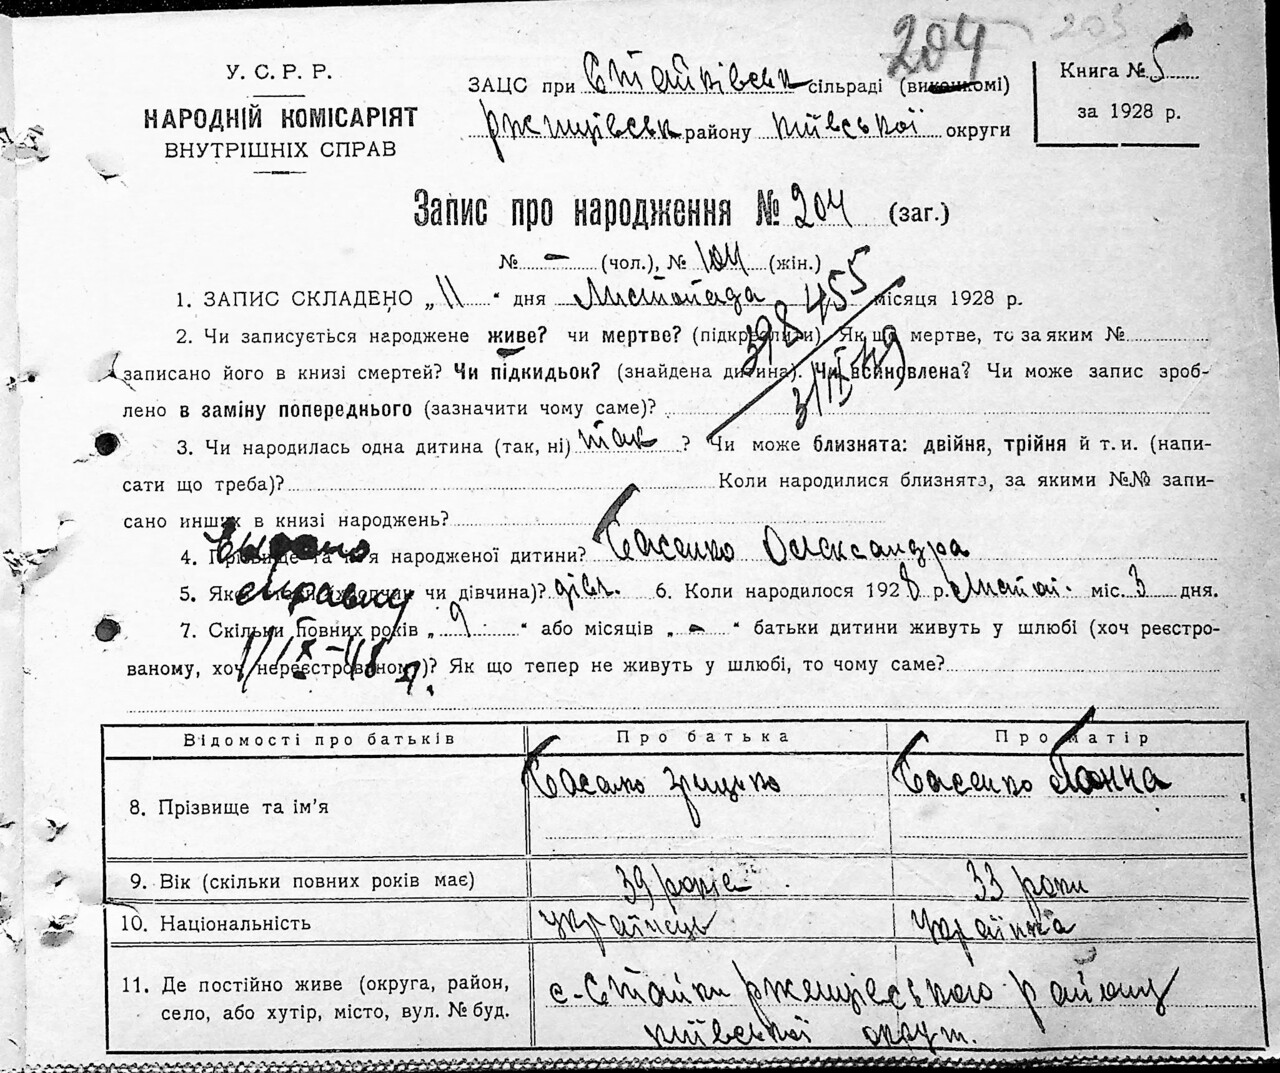 204 203
У. С. Р. Р.
НАРОДНІЙ КОМІСАРІЯТ
ВНУТРІШНІХ СПРАВ
ЗАЦС при Стайківськ сільраді (виконкомі)
Ржищівськ району Київської округи
Книга № 5
за 1928 р.
Запис про народження № 204 (заг.)
№ – (чол.), № 104 (жін.)
1. ЗАПИС СКЛАДЕНО „11“ дня Листопада місяця 1928 р.
2. Чи записується народжене живе? чи мертве? (підкреслити) Як що мертве, то за яким №
записано його в книзі смертей? Чи підкидьок? (знайдена дитина). Чи всиновлена? Чи може запис зроб-
лено в заміну попереднього (зазначити чому саме)?
398455
3/IX 49
3. Чи народилась одна дитина (так, ні) так ? Чи може близнята: двійня, трійня й т. и. (напи-
сати що треба)? Коли народилися близнята, за якими №№ запи-
сано инших в книзі народжень?
4. Прізвище та ім'я народженої дитини? Басенко Олександра
5. Якої статі (хлопчик чи дівчина)? дівч. 6. Коли народилося 1928 р. Листоп. міс. 3 дня.
7. Скільки повних років „9“ або місяців „–“ батьки дитини живуть у шлюбі (хоч реєстро-
ваному, хоч нереєстрованому)? Як що тепер не живуть у шлюбі, то чому саме?
Выдано
справку
1/IX-48 г.
Відомості про батьків Про батька Про матір
8. Прізвище та ім'я Басенко Грицько Басенко Ганна
9. Вік (скільки повних років має) 39 років 33 роки
10. Національність українець Українка
11. Де постійно живе (округа, район, с-Стайки Ржищівського району
село, або хутір, місто, вул. № буд. Київської округ.